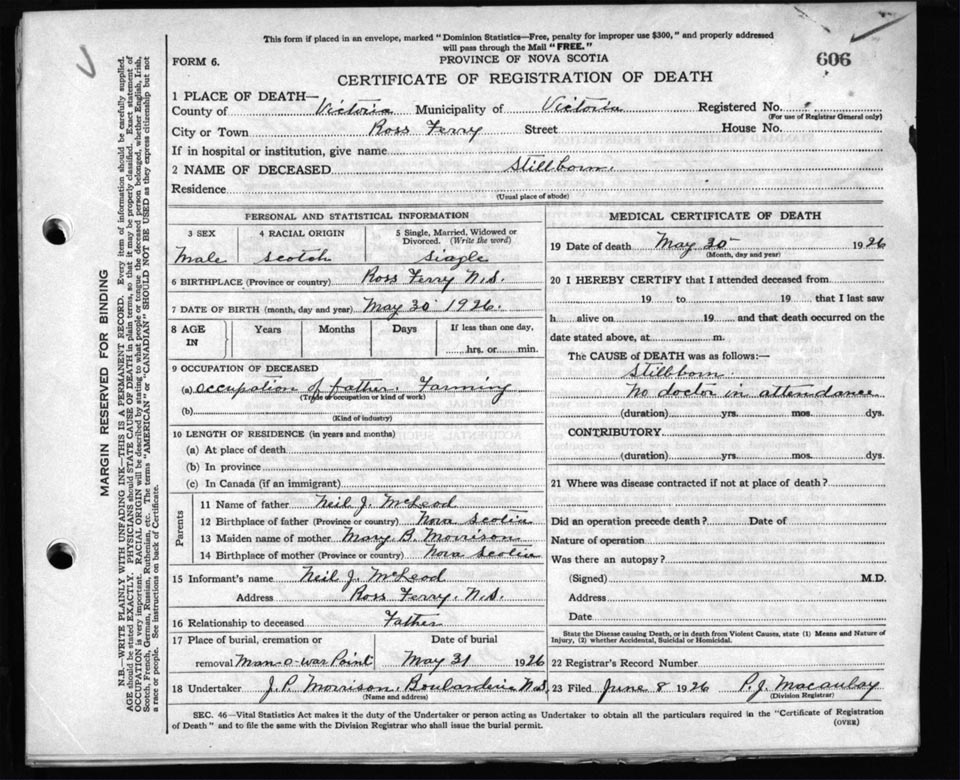 This form if placed in an envelope, marked "Dominion Statistics—Free, penalty for improper use $300," and properly addressed
will pass through the Mail "FREE."
FORM 6.
PROVINCE OF NOVA SCOTIA
606
CERTIFICATE OF REGISTRATION OF DEATH
1 PLACE OF DEATH—
County of Victoria Municipality of Victoria Registered No.
(For use of Registrar General only)
City or Town Ross Ferry Street House No.
If in hospital or institution, give name
2 NAME OF DECEASED Stillborn.
Residence
(Usual place of abode)
PERSONAL AND STATISTICAL INFORMATION
3 SEX 4 RACIAL ORIGIN 5 Single, Married, Widowed or Divorced. (Write the word)
Male Scotch Single
6 BIRTHPLACE (Province or country) Ross Ferry N.S.
7 DATE OF BIRTH (month, day and year) May 30 1926.
8 AGE IN Years Months Days If less than one day,
hrs. or min.
9 OCCUPATION OF DECEASED
(a) Occupation of father. Farming
(Trade or occupation or kind of work)
(b)
(Kind of industry)
10 LENGTH OF RESIDENCE (in years and months)
(a) At place of death
(b) In province
(c) In Canada (if an immigrant)
Parents
11 Name of father Neil J. McLeod
12 Birthplace of father (Province or country) Nova Scotia
13 Maiden name of mother Mary B. Morrison
14 Birthplace of mother (Province or country) Nova Scotia
15 Informant's name Neil J. McLeod
Address Ross Ferry. N.S.
16 Relationship to deceased Father
17 Place of burial, cremation or Date of burial
removal Man-o-war Point May 31 1926
18 Undertaker J.P. Morrison. Boularderie N.S.
(Name and address)
MEDICAL CERTIFICATE OF DEATH
19 Date of death May 30 1926
(Month, day and year)
20 I HEREBY CERTIFY that I attended deceased from
19 to 19 that I last saw
h alive on 19 and that death occurred on the
date stated above, at m.
The CAUSE of DEATH was as follows:—
Stillborn.
No doctor in attendance
(duration) yrs. mos. dys.
CONTRIBUTORY
(duration) yrs. mos. dys.
21 Where was disease contracted if not at place of death?
Did an operation precede death? Date of
Nature of operation
Was there an autopsy?
(Signed) M.D.
Address
Date
State the Disease causing Death, or in death from Violent Causes, state (1) Means and Nature of
Injury, (2) whether Accidental, Suicidal or Homicidal.
22 Registrar's Record Number
23 Filed June 8 1926 P. J. Macaulay
(Division Registrar)
SEC. 46—Vital Statistics Act makes it the duty of the Undertaker or person acting as Undertaker to obtain all the particulars required in the "Certificate of Registration
of Death" and to file the same with the Division Registrar who shall issue the burial permit.
(OVER)
MARGIN RESERVED FOR BINDING
N.B.—WRITE PLAINLY WITH UNFADING INK—THIS IS A PERMANENT RECORD. Every item of information should be carefully supplied.
AGE should be stated EXACTLY. PHYSICIANS should STATE CAUSE OF DEATH in plain terms, so that it may be properly classified. Exact statement of
OCCUPATION is very important. RACIAL ORIGIN will be described by stating to what people or tongue the deceased person belonged, whether English, Irish,
Scotch, French, German, Russian, Ruthenian, etc. The terms "AMERICAN" or "CANADIAN" SHOULD NOT BE USED as they express citizenship but not
a race or people. See instructions on back of Certificate.